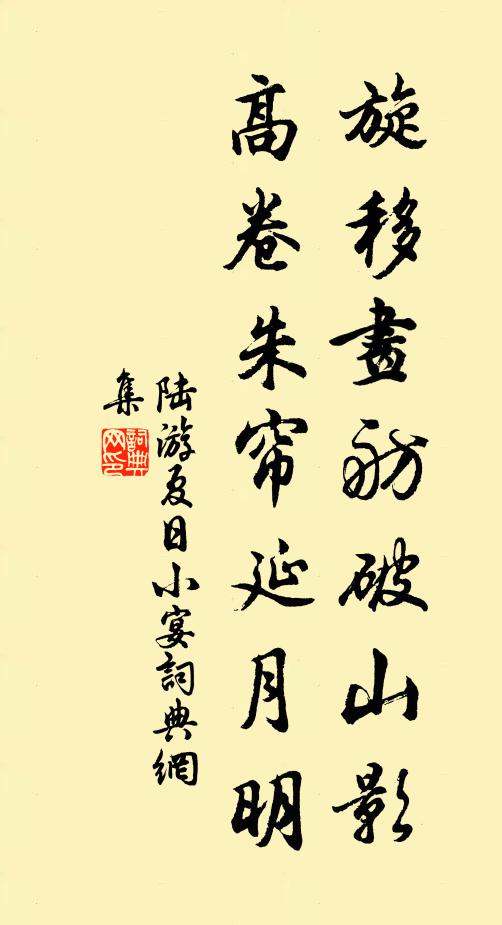 旋移畫舫破山影
高卷朱帘延月明
陆游夏日小宴詞典網
集
詞典
网印